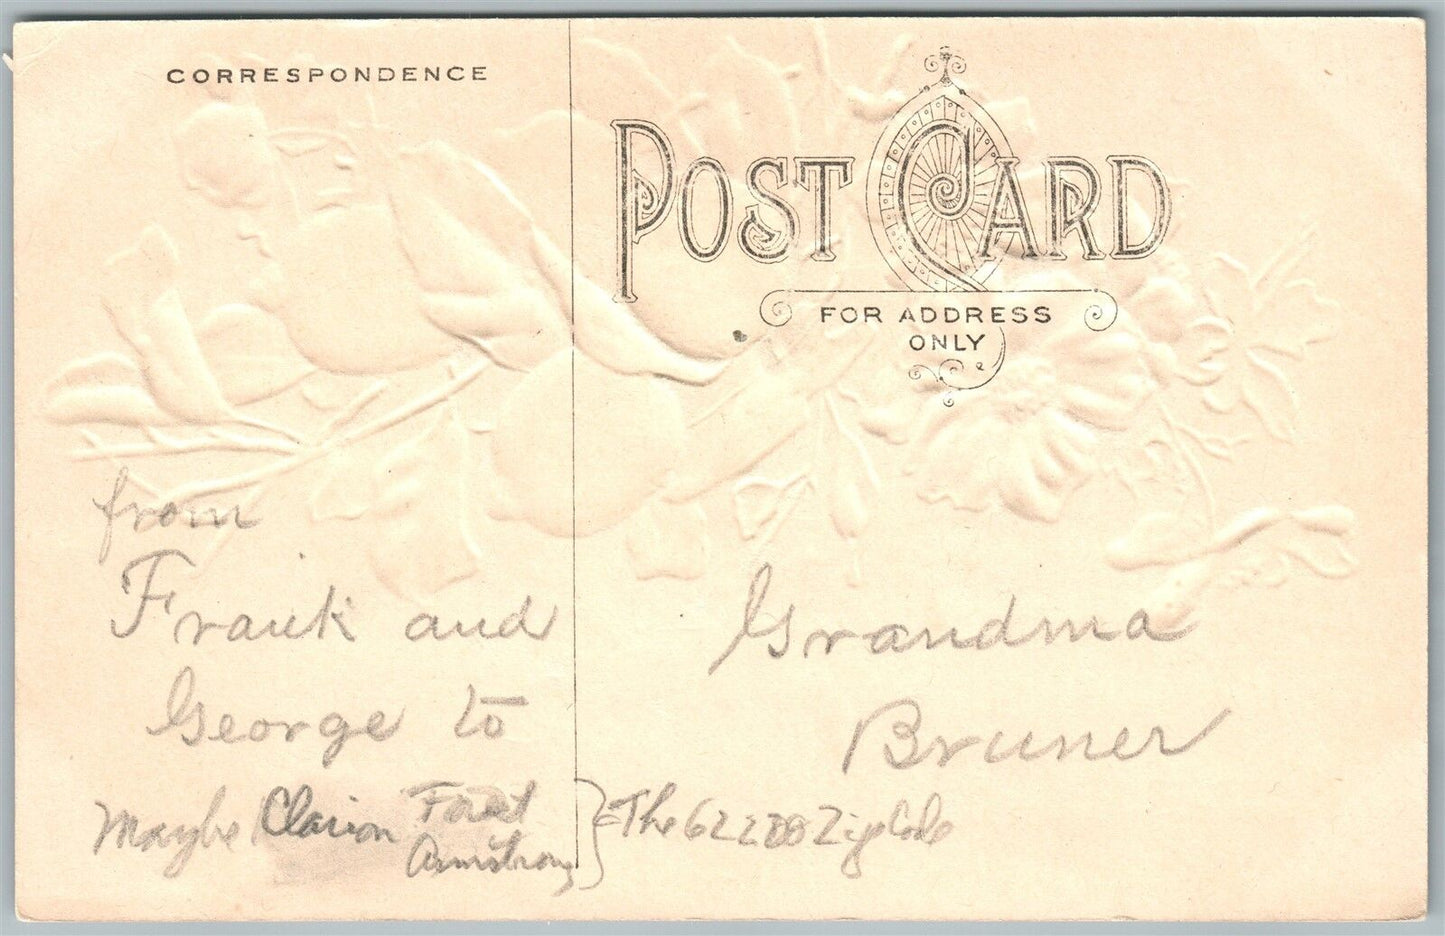 CORRESPONDENCE
POST CARD
FOR ADDRESS
ONLY
from
Frank and
George to
Grandma
Bruner
Maybe Clarion
Armstrong
The Zip Code